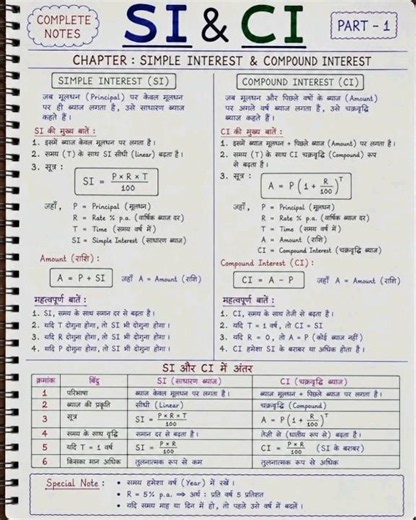 COMPLETE NOTES
SI & CI
PART - 1
CHAPTER : SIMPLE INTEREST & COMPOUND INTEREST
SIMPLE INTEREST (SI)
जब मूलधन (Principal) पर केवल मूलधन
पर ही ब्याज लगता है, उसे साधारण ब्याज
कहते हैं।
SI की मुख्य बातें :
1. इसमें ब्याज केवल मूलधन पर लगता है।
2. समय (T) के साथ SI सीधी (linear) बढ़ता है।
3. सूत्र :
SI = P×R×T / 100
जहाँ, P = Principal (मूलधन)
R = Rate % p.a. (वार्षिक ब्याज दर)
T = Time (समय वर्ष में)
SI = Simple Interest (साधारण ब्याज)
Amount (राशि) :
A = P + SI जहाँ A = Amount (राशि)
महत्वपूर्ण बातें :
1. SI, समय के साथ समान दर से बढ़ता है।
2. यदि T दोगुना होगा, तो SI भी दोगुना होगा।
3. यदि R दोगुना होगा, तो SI भी दोगुना होगा।
4. यदि P दोगुना होगा, तो SI भी दोगुना होगा।
COMPOUND INTEREST (CI)
जब मूलधन और पिछले वर्षों के ब्याज (Amount)
पर अगले वर्ष ब्याज लगता है, उसे चक्रवृद्धि
ब्याज कहते हैं।
CI की मुख्य बातें :
1. इसमें ब्याज मूलधन + पिछले ब्याज (Amount) पर लगता है।
2. समय (T) के साथ CI चक्रवृद्धि (Compound) रूप
से बढ़ता है।
3. सूत्र :
A = P (1 + R/100)^T
जहाँ, P = Principal (मूलधन)
R = Rate % p.a. (वार्षिक ब्याज दर)
T = Time (समय वर्ष में)
A = Amount (राशि)
CI = Compound Interest (चक्रवृद्धि ब्याज)
Compound Interest (CI) :
CI = A - P जहाँ A = Amount (राशि)
महत्वपूर्ण बातें :
1. CI, समय के साथ तेजी से बढ़ता है।
2. यदि T = 1 वर्ष, तो CI = SI
3. यदि R = 0, तो A = P (कोई ब्याज नहीं)
4. CI हमेशा SI के बराबर या अधिक होता है।
SI और CI में अंतर
क्रमांक बिंदु SI (साधारण ब्याज) CI (चक्रवृद्धि ब्याज)
1 परिभाषा ब्याज केवल मूलधन पर लगता है। ब्याज मूलधन + पिछले ब्याज पर लगता है।
2 ब्याज की प्रकृति सीधी (Linear) चक्रवृद्धि (Compound)
3 सूत्र SI = P×R×T / 100 A = P (1 + R/100)^T
4 समय के साथ वृद्धि समान दर से बढ़ता है। तेजी से (घातीय रूप से) बढ़ता है।
5 यदि T = 1 वर्ष SI = P×R / 100 CI = P×R / 100 (SI के बराबर)
6 किसका मान अधिक तुलनात्मक रूप से कम तुलनात्मक रूप से अधिक
Special Note :
• समय हमेशा वर्ष (Year) में रखें।
• R = 5% p.a. ⟹ अर्थ : प्रति वर्ष 5 प्रतिशत
• यदि समय माह या दिन में हो, तो पहले उसे वर्ष में बदलें।